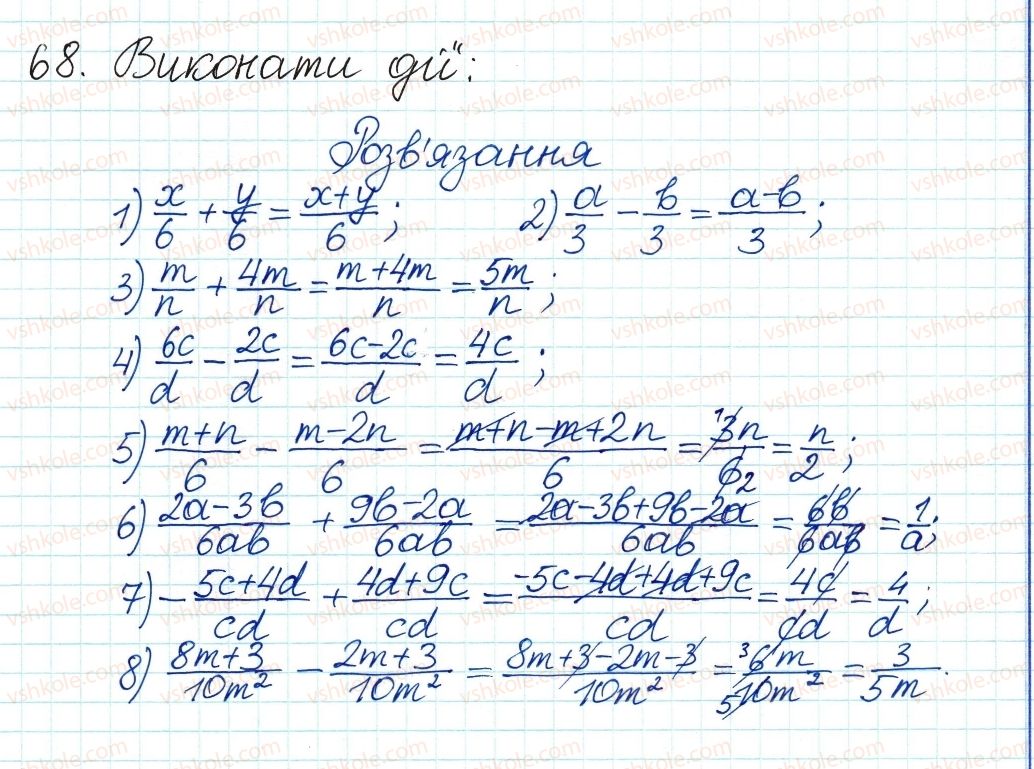 68. Виконати дії:
Розв'язання
1) x/6 + y/6 = (x+y)/6; 2) a/3 − b/3 = (a−b)/3;
3) m/n + 4m/n = (m+4m)/n = 5m/n;
4) 6c/d − 2c/d = (6c−2c)/d = 4c/d;
5) (m+n)/6 − (m−2n)/6 = (m+n−m+2n)/6 = 3n/6 = n/2;
6) (2a−3b)/6ab + (9b−2a)/6ab = (2a−3b+9b−2a)/6ab = 6b/6ab = 1/a;
7) −(5c+4d)/cd + (4d+9c)/cd = (−5c−4d+4d+9c)/cd = 4c/cd = 4/d;
8) (8m+3)/10m² − (2m+3)/10m² = (8m+3−2m−3)/10m² = 6m/10m² = 3/5m.